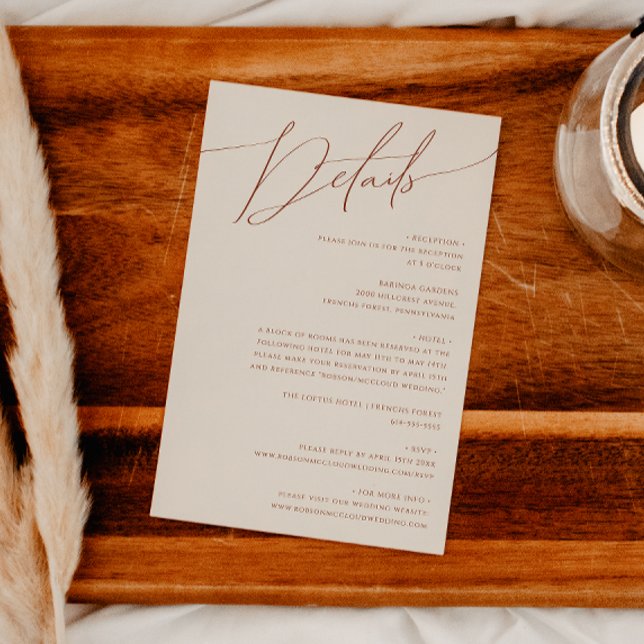 Details
• RECEPTION •
PLEASE JOIN US FOR THE RECEPTION
AT 5 O'CLOCK
BARINGA GARDENS
2000 HILLCREST AVENUE,
FRENCHS FOREST, PENNSYLVANIA
• HOTEL •
A BLOCK OF ROOMS HAS BEEN RESERVED AT THE
FOLLOWING HOTEL FOR MAY 11TH TO MAY 14TH
PLEASE MAKE YOUR RESERVATION BY APRIL 15TH
AND REFERENCE "ROBSON/MCCLOUD WEDDING."
THE LOFTUS HOTEL | FRENCHS FOREST
614-555-5555
• RSVP •
PLEASE REPLY BY APRIL 15TH 20XX
WWW.ROBSONMCCLOUDWEDDING.COM/RSVP
• FOR MORE INFO •
PLEASE VISIT OUR WEDDING WEBSITE:
WWW.ROBSONMCCLOUDWEDDING.COM